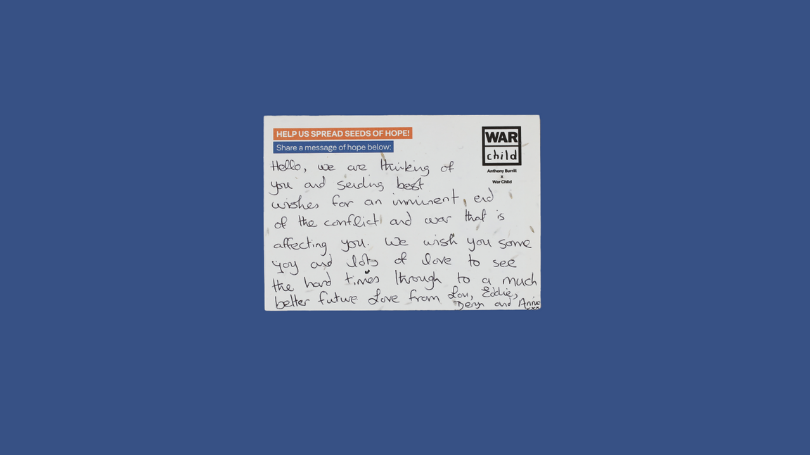 HELP US SPREAD SEEDS OF HOPE!
Share a message of hope below:
WAR
child
Anthony Burrill
x
War Child
Hello, we are thinking of
you and sending best
wishes for an imminent end
of the conflict and war that is
affecting you. We wish you some
yoy and lots of love to see
the hard times through to a much
better future Love from Lou, Eddie,
Deryn and Anna